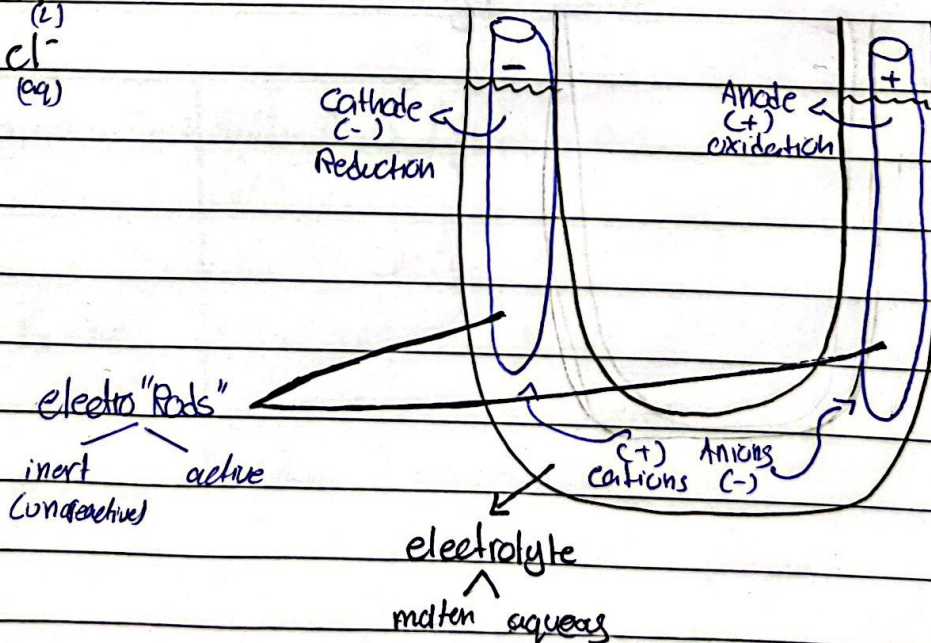 (l)
Cl⁻
(aq)
-
+
Cathode
(-)
Reduction
Anode
(+)
oxidation
electro"Rods"
inert active
(unreactive)
(+) Anions
cations (-)
electrolyte
molten aqueas